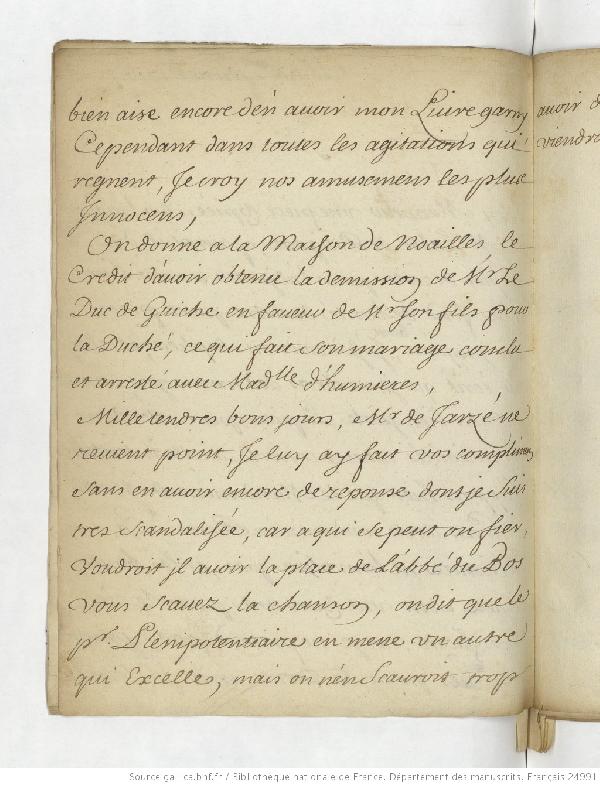 bien aise encore d'en auoir mon Liure garny
Cependant dans toutes les agitations qui
regnent, Je croy nos amusemens les plus
Innocens,
On donne a la Maison de Noailles le
Credit d'auoir obtenu la demission de Mr. Le
Duc de Guiche en faueur de Mr. son fils pour
la Duché, ce qui fait son mariage conclu
et arresté auec Madlle d'humieres,
Mille tendres bons jours, Mr. de Jarzé ne
reuient point, Je luy ay fait vos complimens
sans en auoir encore de reponse dont je suis
tres scandalisée, car a qui se peut on fier,
Voudroit jl auoir la place de L'abbé du Bos
vous scauez la chanson, on dit que le
pr. Plenipotentiaire en mene vn autre
qui Excelle, mais on n'en scauroit trop
auoir d
viendro
Source gallica.bnf.fr / Bibliothèque nationale de France. Département des manuscrits. Français 24991